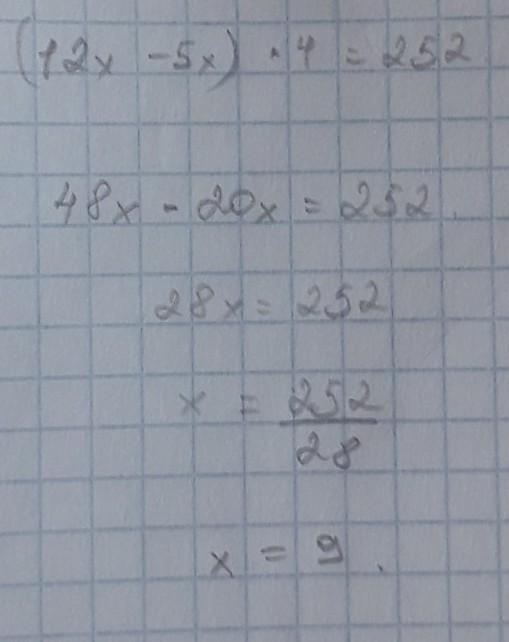 (12x - 5x) · 4 = 252
48x - 20x = 252.
28x = 252
x = 252/28
x = 9.